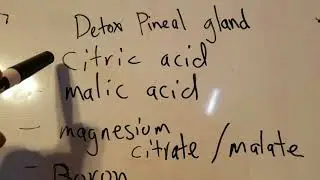 Detox Pineal gland
citric acid
- malic acid
- magnesium
citrate/malate
- Boron